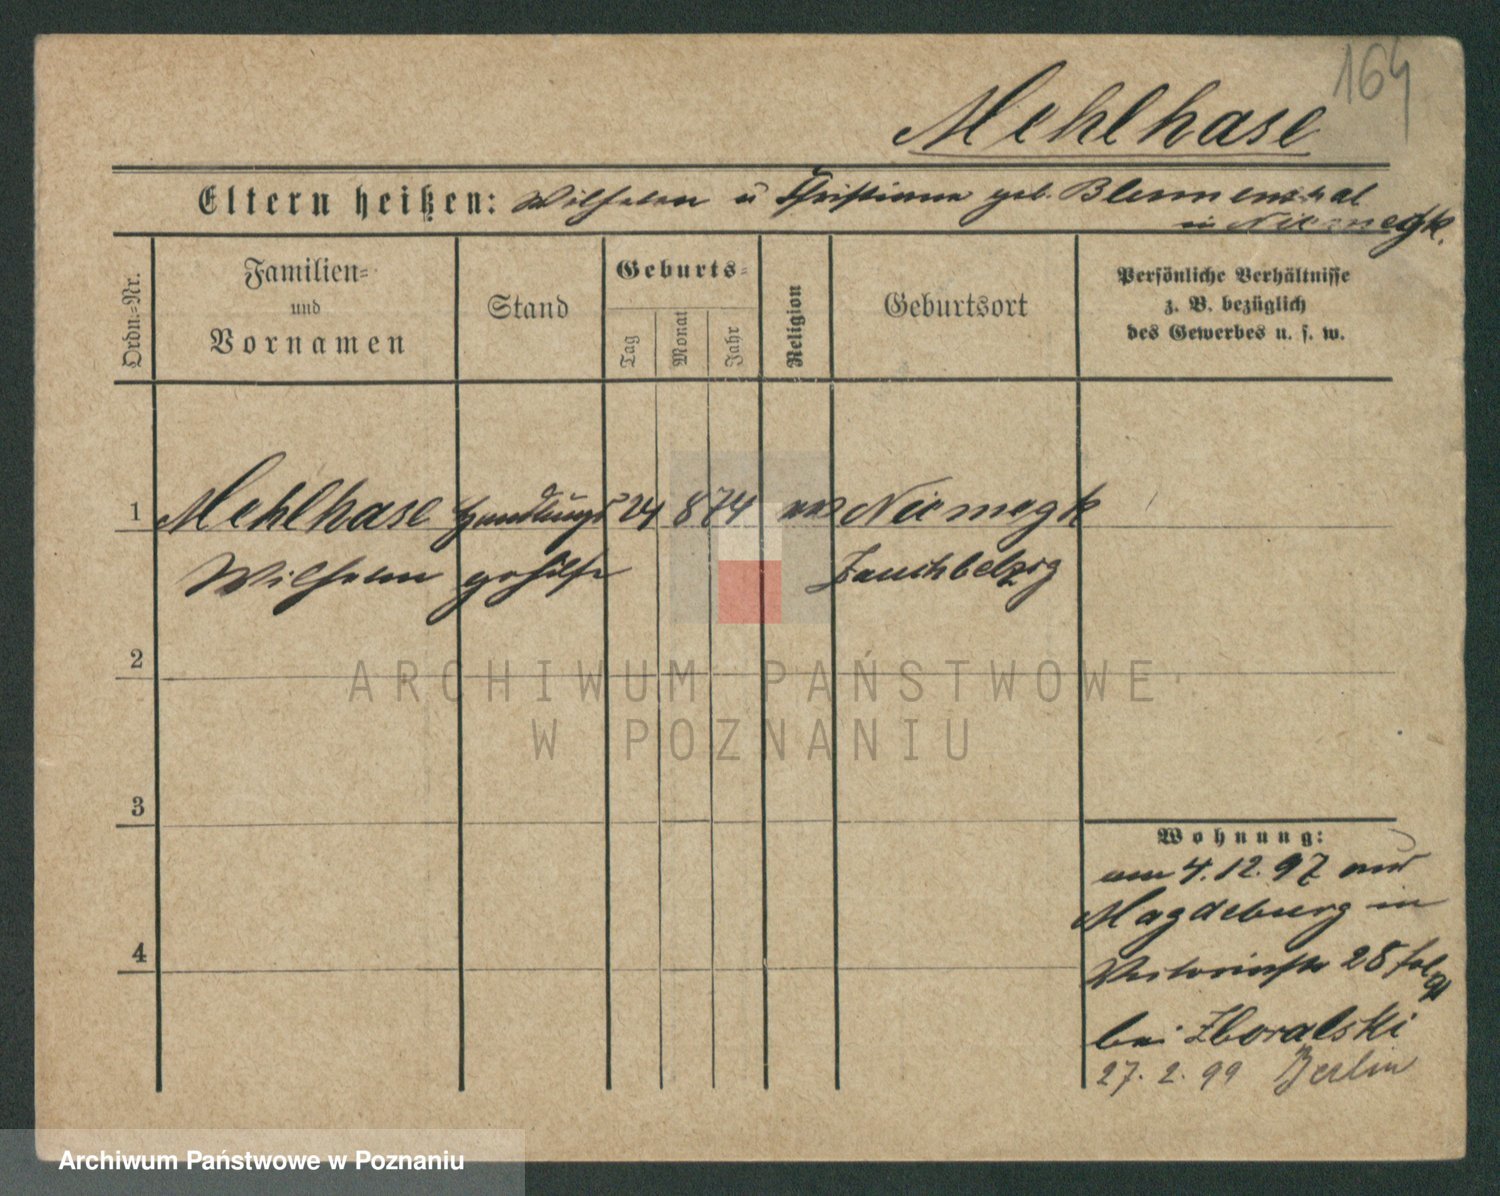 164
Mehlhase
Eltern heißen: Wilhelm u Christiane geb. Blumenthal
in Niemegk.
Ordn.=Nr.
Familien=
und
Vornamen
Stand
Geburts=
Tag
Monat
Jahr
Religion
Geburtsort
Persönliche Verhältnisse
z. B. bezüglich
des Gewerbes u. s. w.
1 Mehlhase Handlungs 24 8 74 ev Niemegk
Wilhelm gehilfe Zauchbelzig
2
3
4
Wohnung:
am 4.12.97 aus
Magdeburg in
28
bei Zboralski
27. 2. 99 Berlin
ARCHIWUM PAŃSTWOWE
W POZNANIU
Archiwum Państwowe w Poznaniu